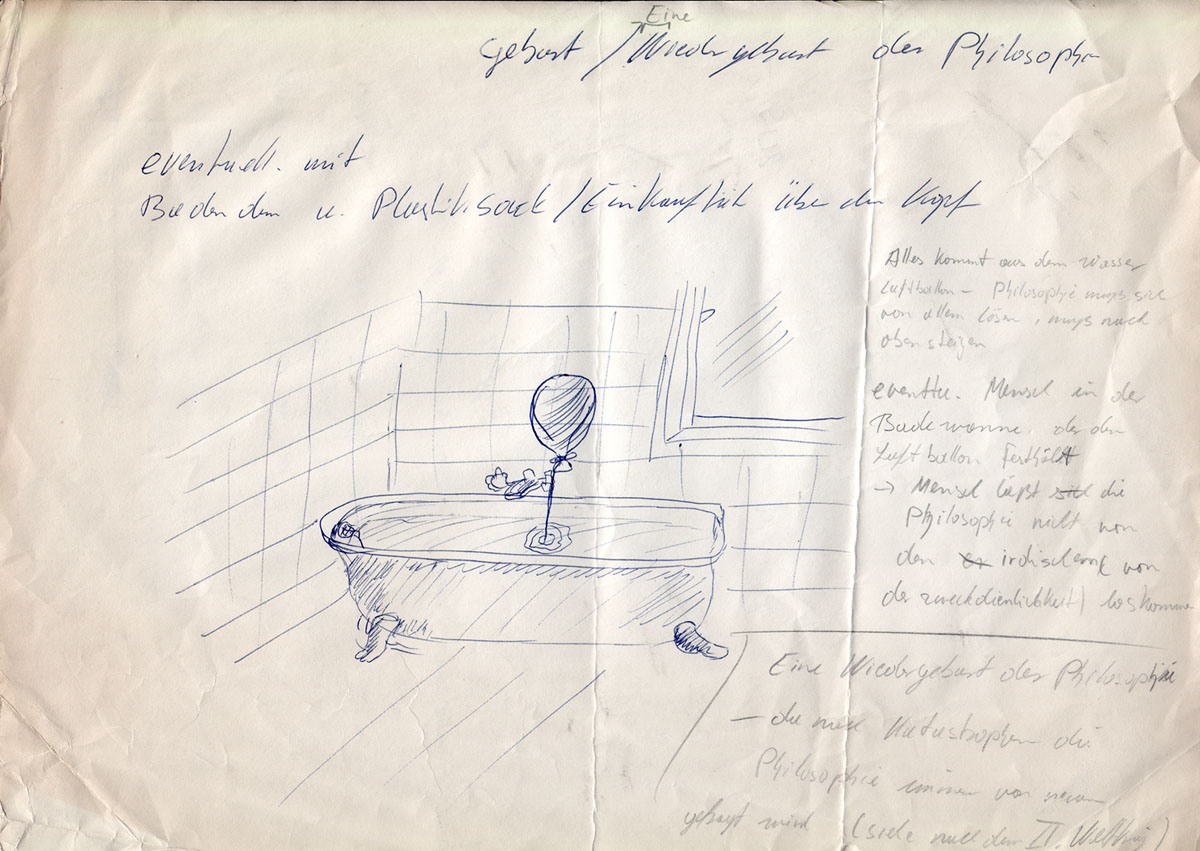 Eine
Geburt / Wiedergeburt der Philosophie
eventuell. mit
Badendem u. Plastiksack / Einkauf über den Kopf
Alles kommt aus dem Wasser
Luftballon – Philosophie muss sich
von allem lösen, muss nach
oben steigen
eventu. Mensch in der
Badewanne, der den
Luftballon festhält
→ Mensch läßt die
Philosophie nicht von
den irdischem von
der zweckdienlichkeit) loskommen
Eine Wiedergeburt der Philosophie
– da nach Katastrophen die
Philosophie immer von neuem
gefragt wird (siehe nach dem II. Weltkrieg)